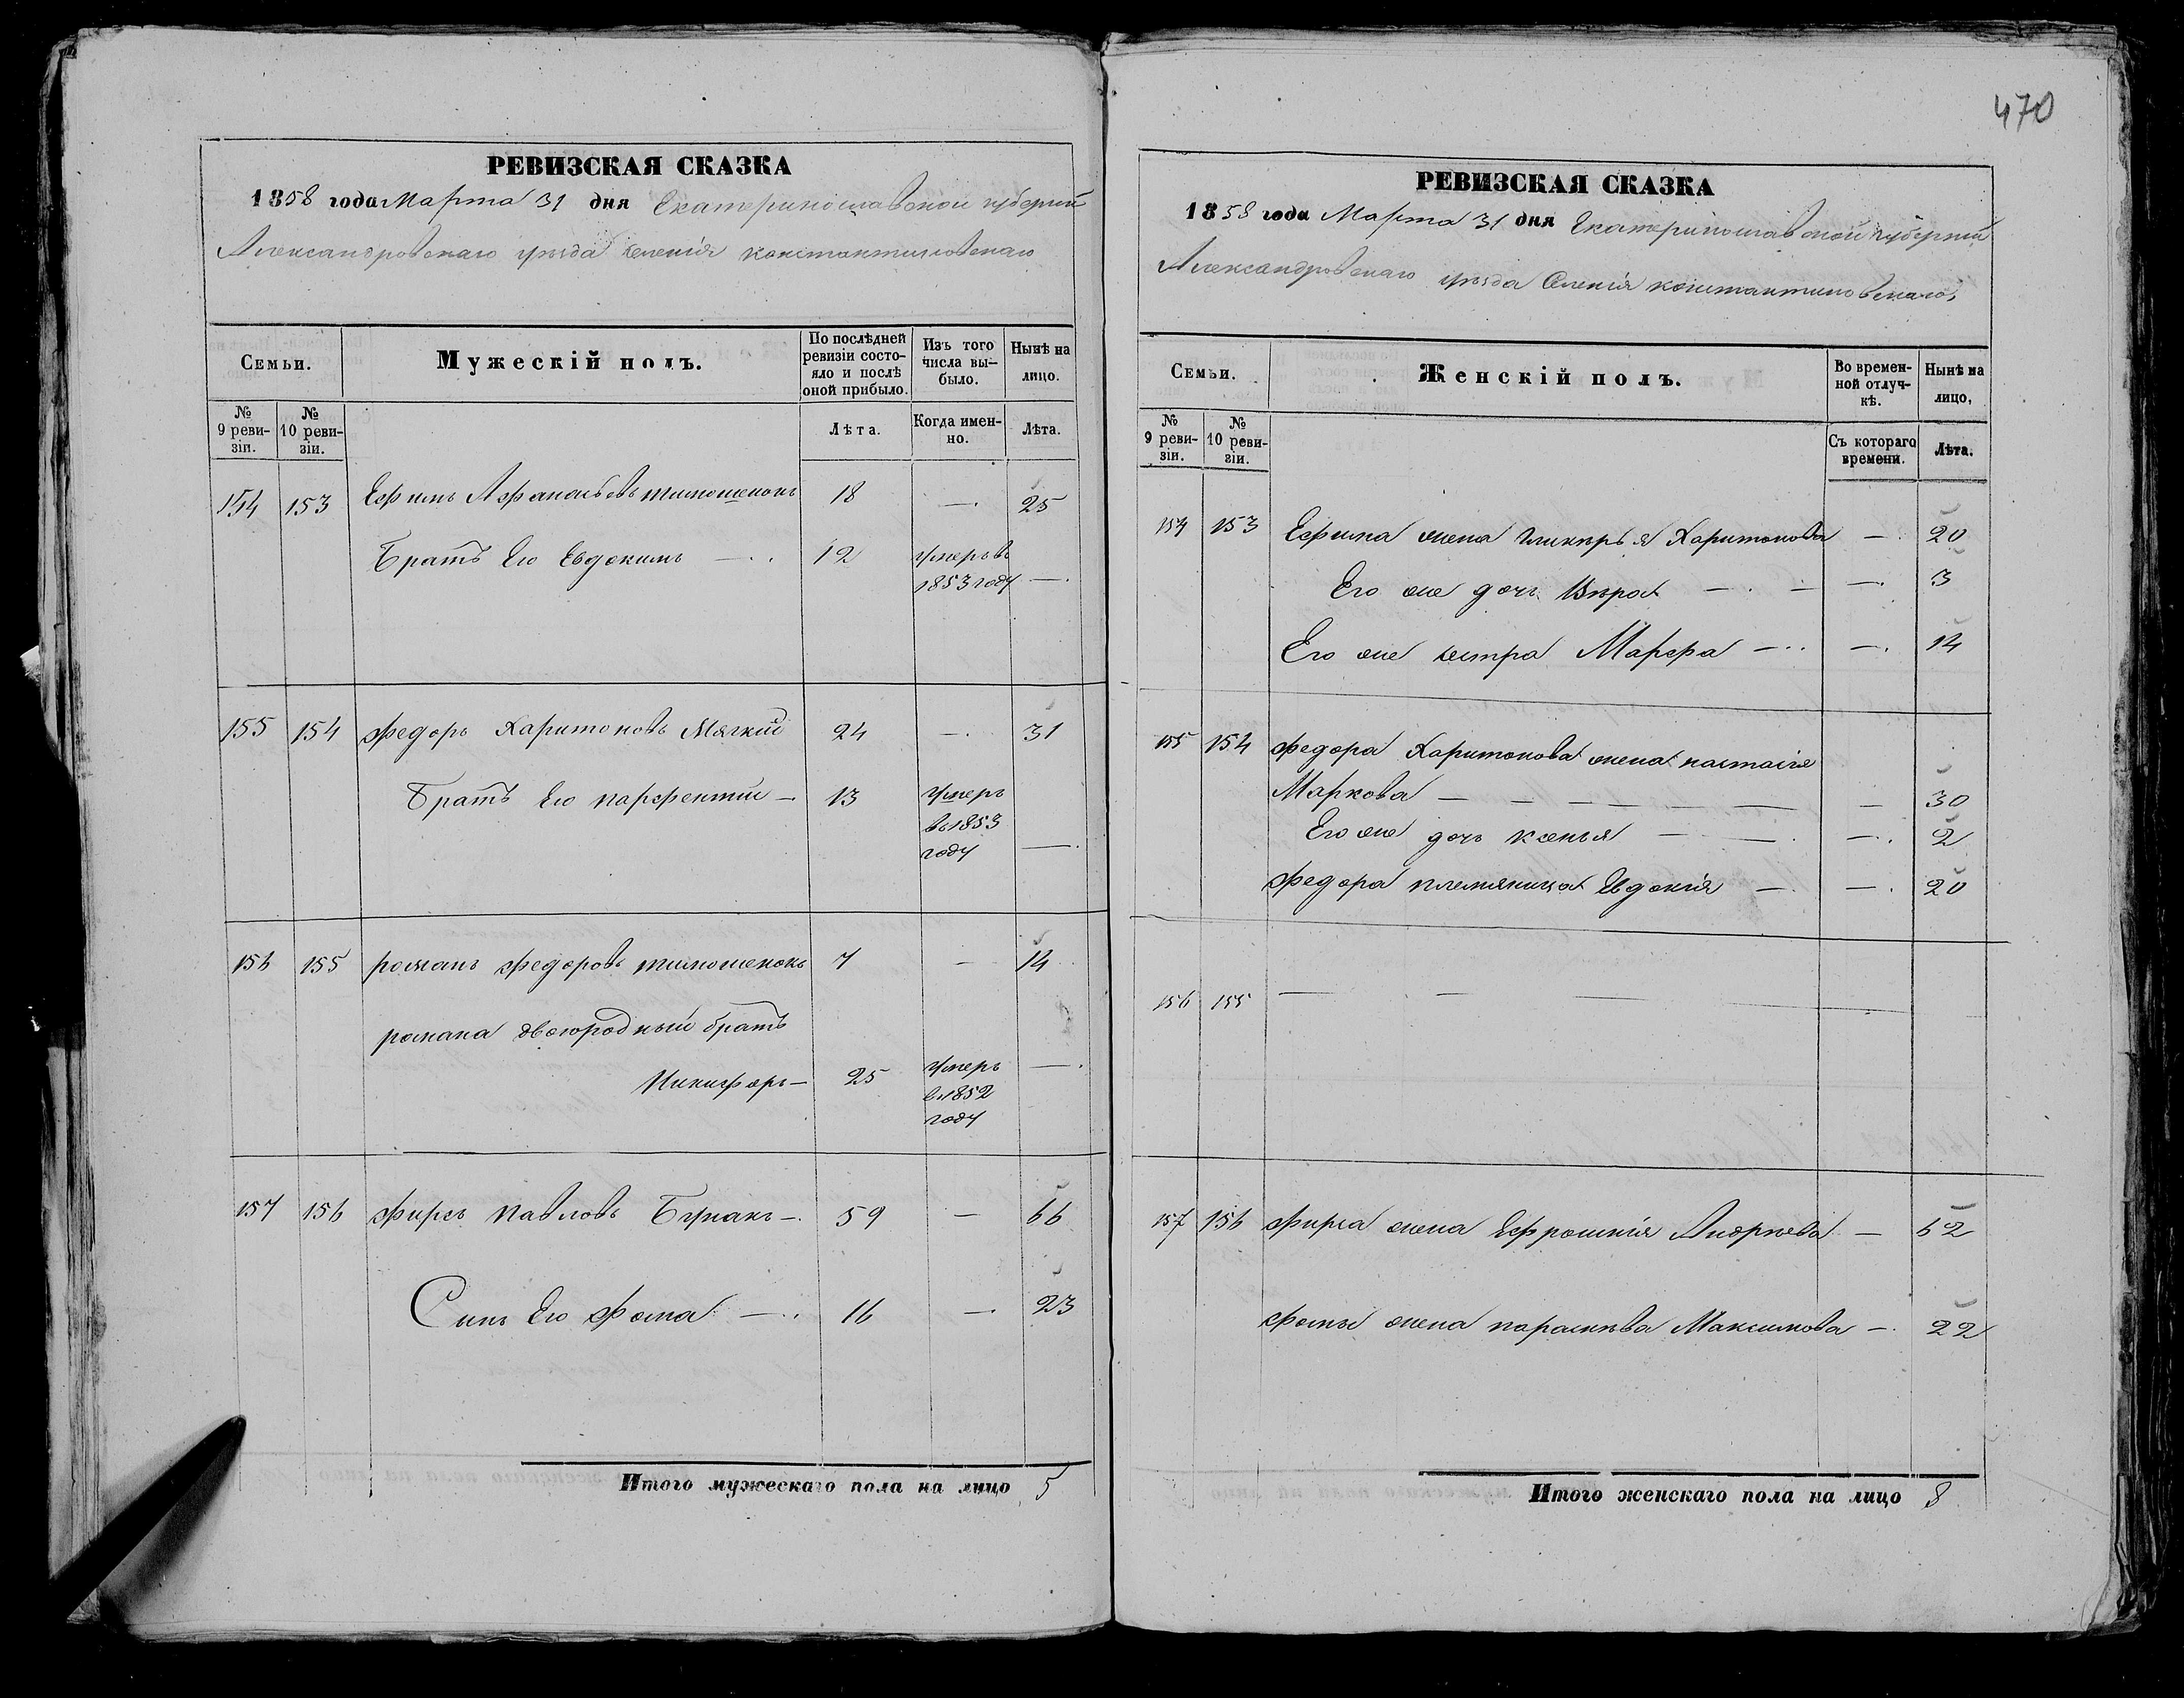 РЕВИЗСКАЯ СКАЗКА
1858 года Марта 31 дня Екатеринославской губернiи
Александровскаго уѣзда селенiя константиновскаго
Семьи.
Мужескiй полъ.
По послѣдней ревизiи состояло и послѣ оной прибыло.
Изъ того числа выбыло.
Нынѣ на лицо.
№ 9 ревизiи.
№ 10 ревизiи.
Лѣта.
Когда именно.
Лѣта.
154 153 Ефимъ Афанасьевъ тимошенокъ 18 — 25
Братъ Его Евдокимъ — 12 умеръ въ
1853 году —
155 154 Федоръ Харитоновъ Мягкий 24 — 31
Братъ Его парфентий — 13 умеръ
въ 1853
году —
156 155 романъ Федоровъ тимошенокъ 7 — 14
романа двоюродный братъ
Никифоръ — 25 умеръ —
въ 1852
году
157 156 Фирсъ павловъ Бурнакъ — 59 — 66
Сынъ Его Фома — 16 — 23
Итого мужескаго пола на лицо 5
470
РЕВИЗСКАЯ СКАЗКА
1858 года Марта 31 дня Екатеринославской губернiи
Александровскаго уѣзда Селенiя константиновскаго,
Семьи.
Женскiй полъ.
Во временной отлучкѣ.
Нынѣ на лицо,
№ 9 ревизiи.
№ 10 ревизiи.
Съ котораго времени.
Лѣта.
154 153 Ефима жена гликѣрья Харитонова — 20
Его же дочь Вѣра — — 3
Его же сестра Марфа — — 14
155 154 Федора Харитонова жена настасiя
Маркова — — 30
Его же дочь ксенья — — 2
Федора племяница Евдокiя — — 20
156 155 —
157 156 Фирса жена Ефросинiя Андрѣева — 62
Фомы жена параскѣва Максимова — 22
Итого женскаго пола на лицо 8